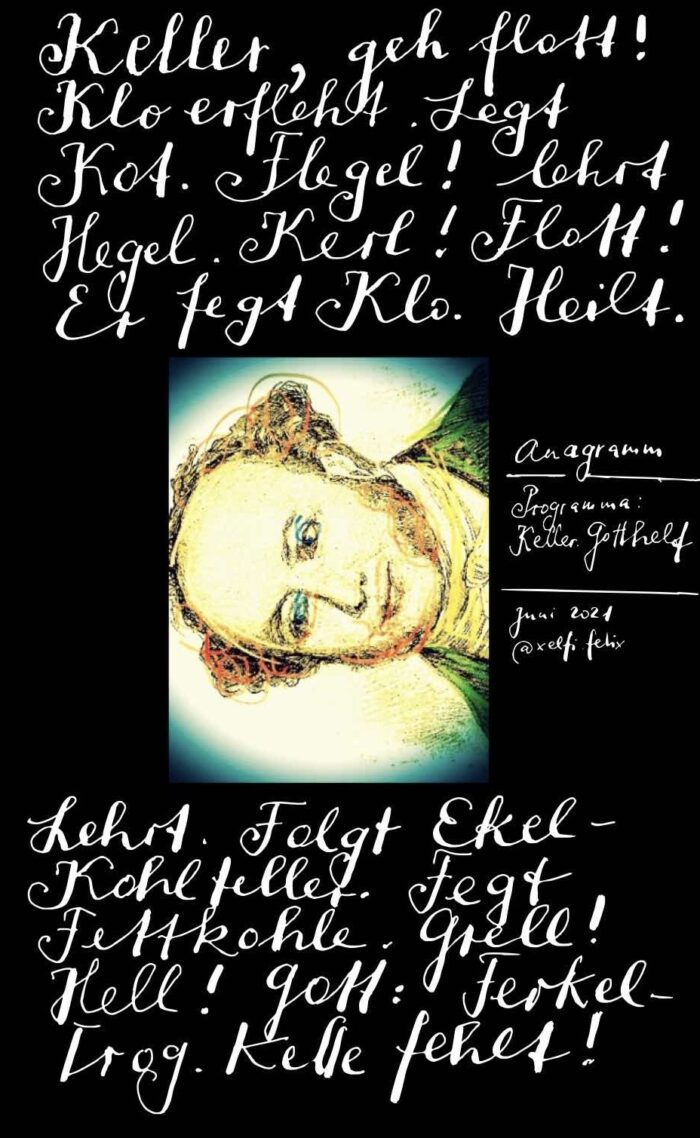 Keller, geh flott!
Klo erfleht. Legt
Kot. Flegel! lehrt
Hegel. Kerl! Flott!
Er fegt Klo. Hellt.
Anagramm
Programma:
Keller. Gotthelf
Juni 2021
@xelfi.felix
Lehrt. Folgt Ekel-
Kohlteller. Fegt
Fettkohle. Grell!
Hell! Gott: Ferkel-
Trog. Kelle fehlt!